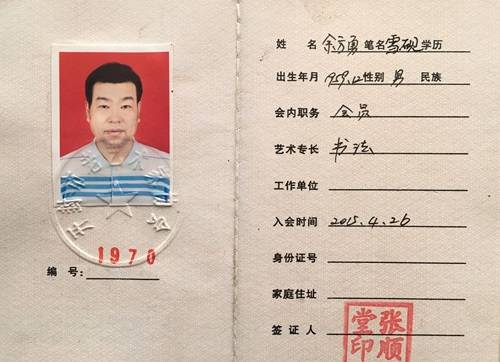 1970
编 号:
姓 名 余方勇 笔名 雪砚 学历
出生年月 1959.12 性别 男 民族
会内职务 会员
艺术专长 书法
工作单位
入会时间 2015.4.26
身份证号
家庭住址
签 证 人 张顺堂印